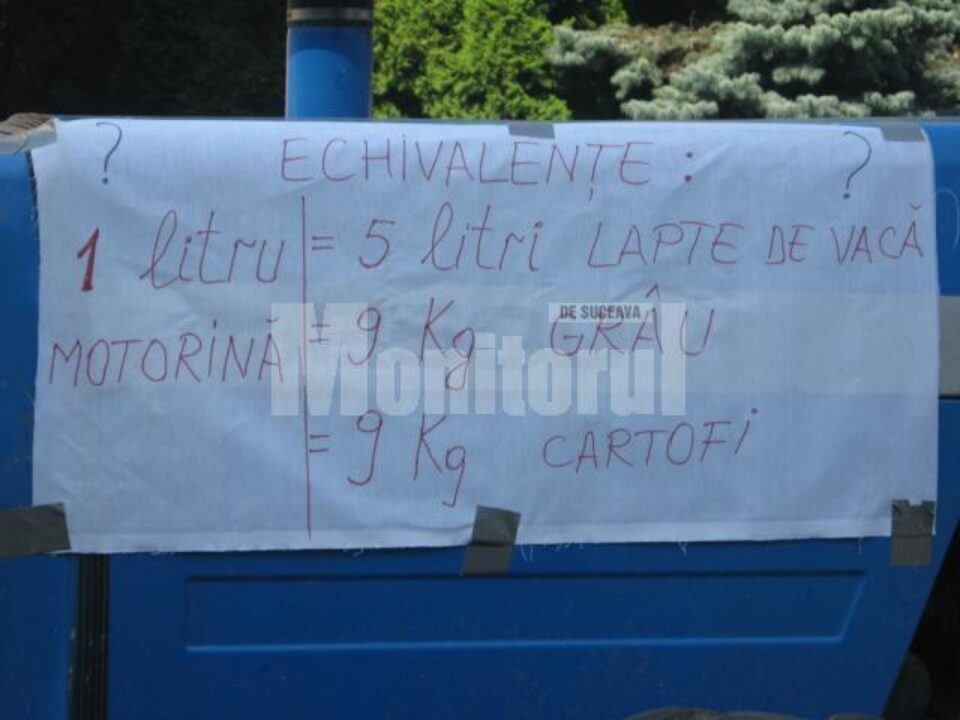 ? ECHIVALENȚE : ?
1 litru = 5 litri LAPTE DE VACĂ
MOTORINĂ = 9 Kg GRÂU
= 9 Kg CARTOFI
DE SUCEAVA
Monitorul